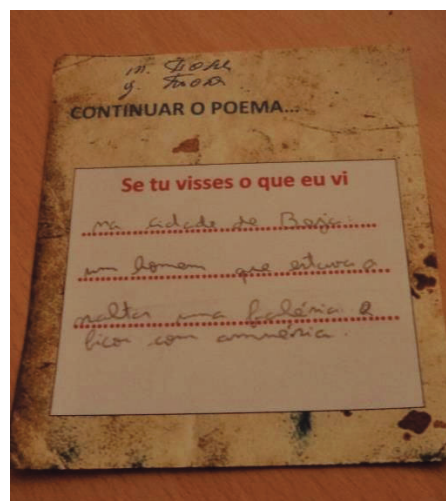 CONTINUAR O POEMA...
Se tu visses o que eu vi
na cidade de Beja:
um homem que estava a
saltar uma falésia e
ficou com amnésia.